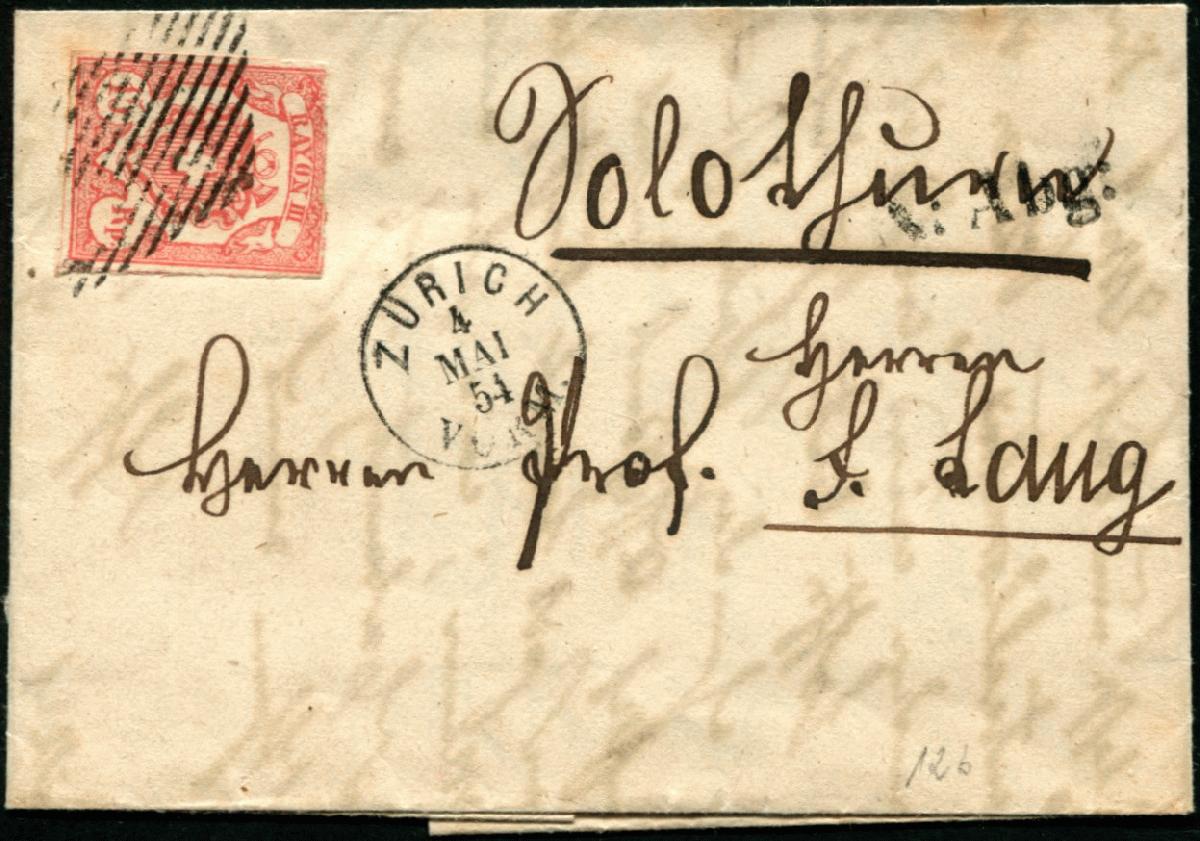 RAYON III
Solothurn
1: Abg:
ZÜRICH
4
MAI
54
VORM.
Herren
Herren Prof. F. Lang
12b